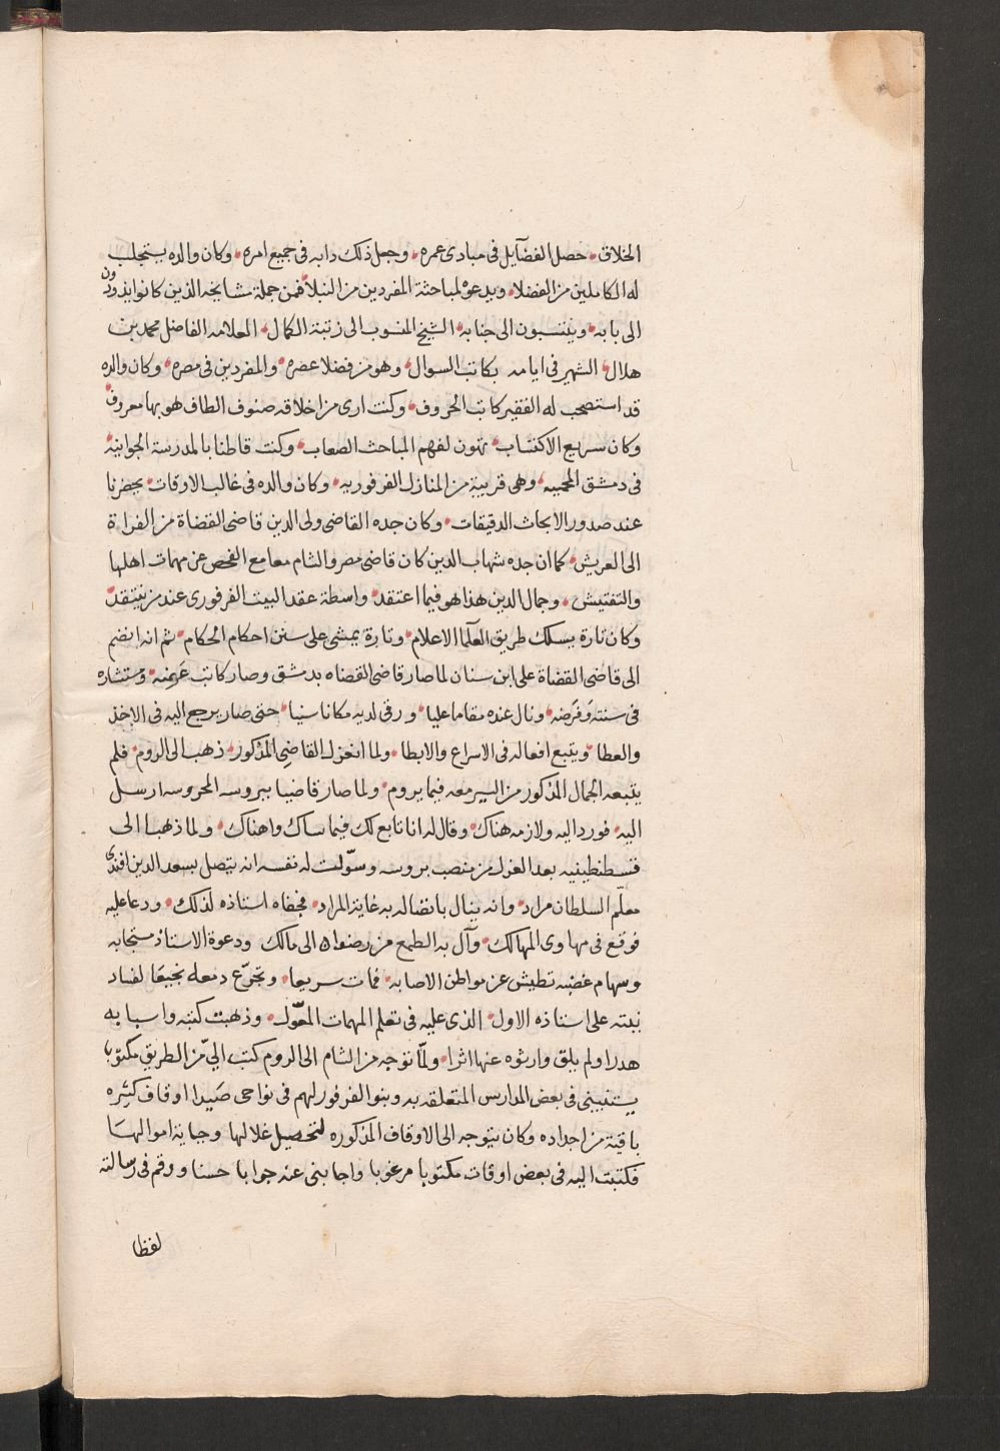 الخلاق • حصل الفضآيل فى مبادى عمره • وجعل ذلك دابه فى جميع امره • وكان والده يستجلب
له الكاملين من الفضلا • ويدعوه لمباحثة المفردين من النبلا • فمن جملة مشايخه الذين كانوا يفدون
الى بابه • وينتسبون الى جنابه • الشيخ المنسوب الى رتبة الكمال • العلامه الفاضل محمد بن
هلال • الشهير فى ايامه بكاتب السوال • وهو من فضلا عصره • والمفردين فى مصره • وكان والده
قد استصحب له الفقير كاتب الحروف • وكنت ارى من اخلاقه صنوف الطاف هو بها معروف
وكان سريع الاكتساب • لفهم المباحث الصعاب • وكنت قاطنا بالمدرسة الجوانية
فى دمشق المحميه • وهى قريبة من المنازل الفرفوريه • وكان والده فى غالب الاوقات • يحضرنا
عند صدور الابحاث الدقيقات • وكان جده القاضى ولى الدين قاضى القضاة من الفراة
الى العريش • كما ان جده شهاب الدين كان قاضى مصر والشام معا مع الفحص عن مهمات اهلها
والتفتيش • وجمال الدين هذا هو فيما اعتقد • واسطة عقد البيت الفرفورى عند من ينتقد
وكان تارة يسلك طريق العلما الاعلام • وتارة يمشى على سنن احكام الحكام • ثم انه انضم
الى قاضى القضاة على ابن سنان لما صار قاضى القضاه بدمشق وصار كاتب عرضه • ومستشاره
فى سنته وفرضه • ونال عنده مقاما عليا • ورقى لديه مكانا سنيا • حتى صار يرجع اليه فى الاخذ
والعطا • ويتبع افعاله فى الاسراع والابطا • ولما انعزل القاضى المذكور • ذهب الى الروم • فلم
يتبعه الجمال المذكور من السير معه فيما يروم • ولما صار قاضيا ببروسه المحروسه ارسل
اليه • فورد اليه ولازمه هناك • وقال له انا تابع لك فيما ساك واهناك • ولما ذهبا الى
قسطنطينيه بعد العزل من منصب بروسه وسوّلت له نفسه انه يتصل بسعد الدين افندى
معلّم السلطان مراد • وانه ينال باتصاله به غاية المراد • فجفاه استاذه لذلك • ودعا عليه
فوقع فى مهاوى المهالك • وآل به الطمع من رضوان الى مالك ودعوة الاستاذ مستجابه
وسهام غضبه تطيش عن مواطن الاصابه • فمات سريعا • وتجرّع دمعه نجيعا لفساد
نيته على استاذه الاول • الذى عليه فى تعلم المهمات المعوّل • وذهبت كتبه واسبابه
هدرا ولم يلق وارثوه عنها اثرا • ولمّا توجه من الشام الى الروم كتب اليّ من الطريق مكتوبا
يستنيبنى فى بعض المدارس المتعلقه به وبنو الفرفور لهم فى نواحى صيدا اوقاف كثيره
باقية من اجداده وكان يتوجه الى الاوقاف المذكوره لتحصيل غلالها وجباية اموالها
فكتبت اليه فى بعض اوقات مكتوبا مرغوبا واجابنى عنه جوابا حسنا ووقع فى رسالته
لفظا